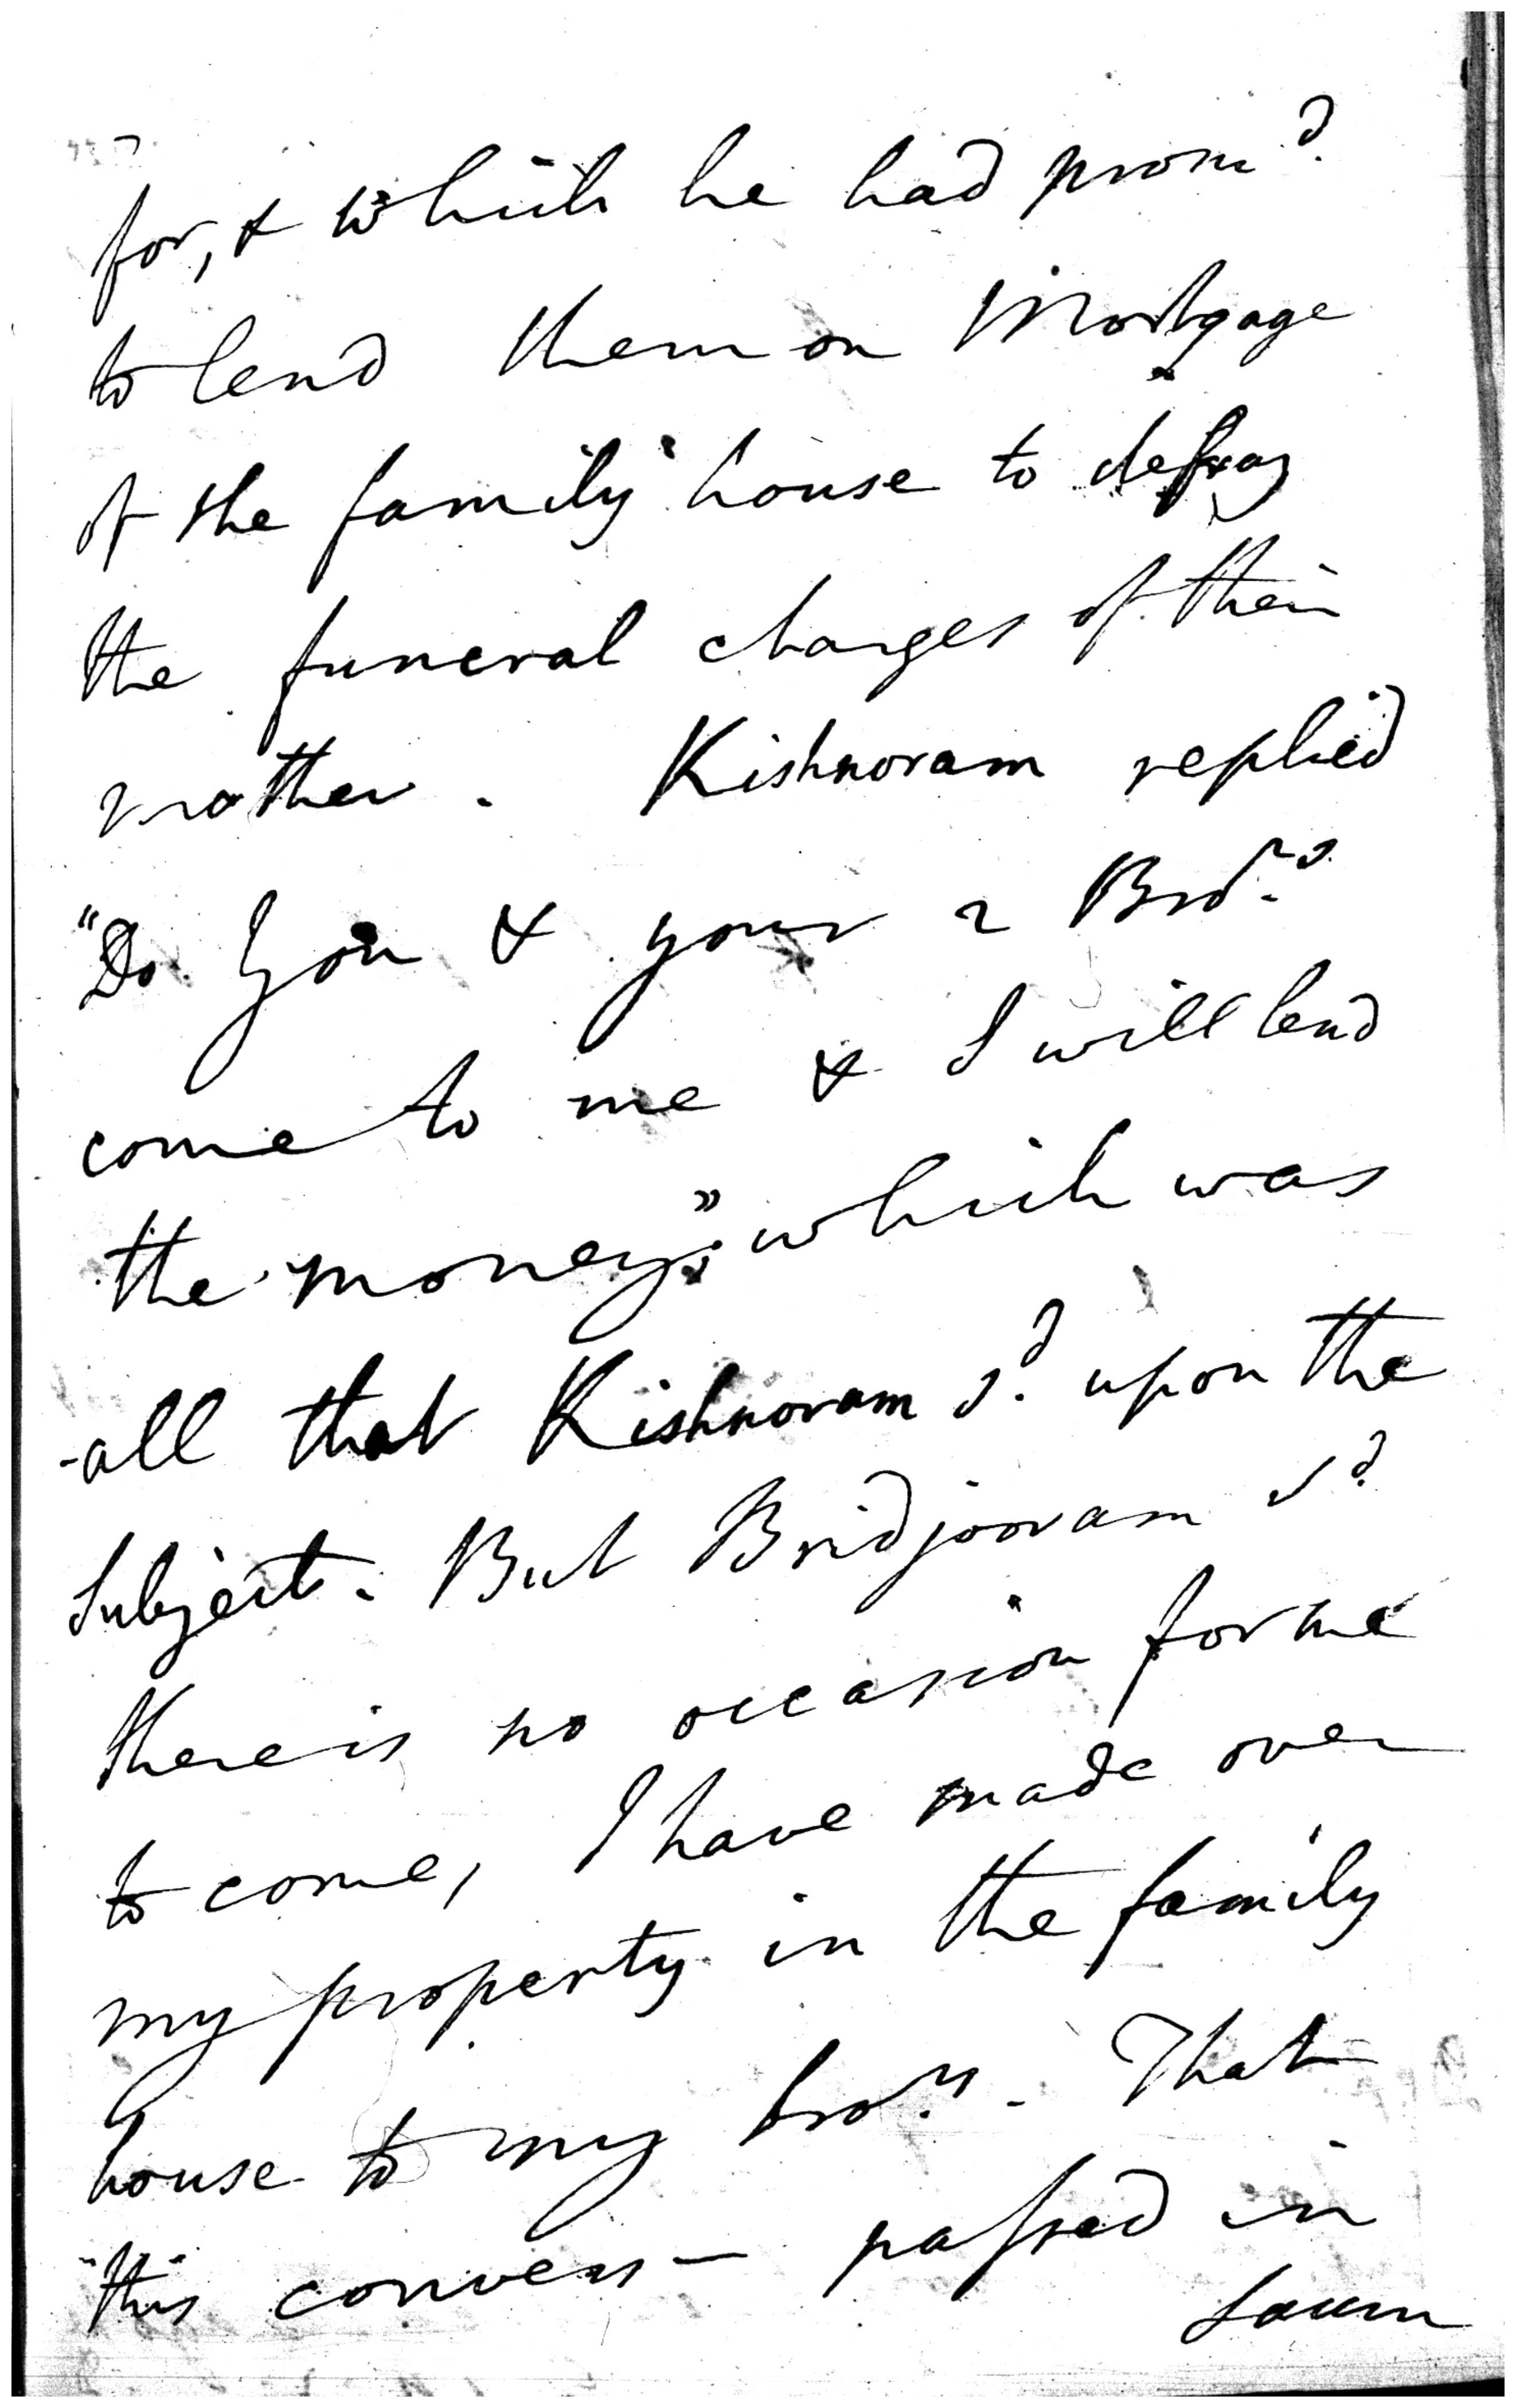 for, & which he had prom.d
to lend them on Mortgage
of the family house to defray
the funeral charges of their
mother. Kishnoram replied
"Do you & your 2 Bro.rs
come to me & I will lend
the money;" which was
all that Kishnoram s.d upon the
Subject. But Bridjooram s.d
there is no occasion for me
to come, I have made over
my property in the family
house to my bro.rs. That
this convers— passed in